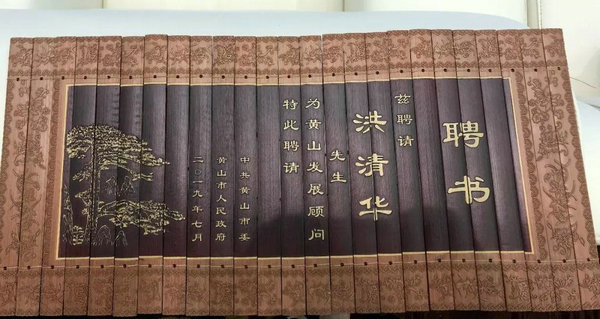 聘书
兹聘请
洪清华
先生
为黄山发展顾问
特此聘请
中共黄山市委
黄山市人民政府
二〇一九年七月